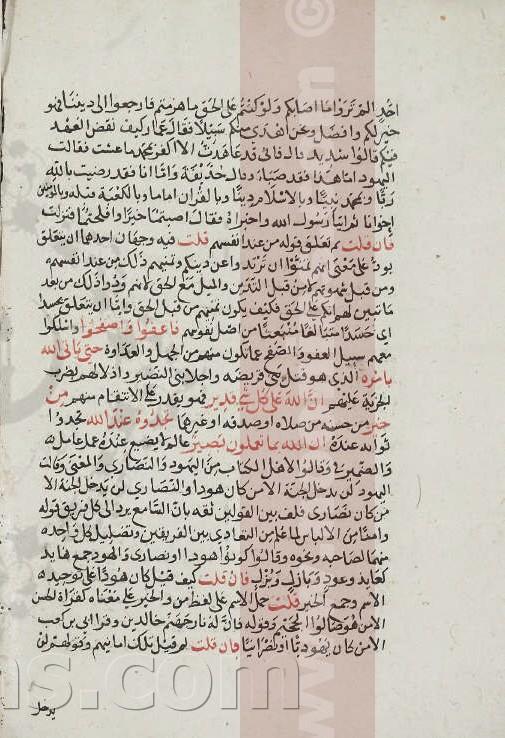 احد الم تروا ما اصابكم ولو كنتم على الحق ما هزمتم فارجعوا الى ديننا فهو
خير لكم وافضل ونحن اهدى منكم سبيلا فقال عمار كيف نقض العهد
فيكم قالوا شديد قال فاني قد عاهدت الا اكفر بمحمد ما عشت فقالت
اليهود اما هذا فقد صبا وقال حذيفة واما انا فقد رضيت بالله
ربا وبمحمد نبيا وبالاسلام دينا وبالقران اماما وبالكعبة قبلة وبالمؤمنين
اخوانا ثم اتيا رسول الله واخبراه فقال اصبتما خيرا وافلحتما فنزلت
فان قلت بم تعلق قوله من عند انفسهم قلت فيه وجهان احدهما ان يتعلق
بود على معنى انهم تمنوا ان ترتدوا عن دينكم وتمنيهم ذلك من عند انفسهم
ومن قبل شهوتهم لا من قبل التدين والميل مع الحق لانهم ودوا ذلك من بعد
ما تبين لهم انكم على الحق فكيف يكون تمنيهم من قبل الحق واما ان يتعلق بحسدا
اي حسدا متبالغا منبعثا من اصل نفوسهم فاعفوا واصفحوا واسلكوا
معهم سبيل العفو والصفح عما يكون منهم من الجهل والعداوة حتى ياتي الله
بامره الذي هو قتل بني قريضه واجلا بني النضير واذلالهم بضرب
الجزية عليهم ان الله على كل شي قدير فهو يقدر على الانتقام منهم من
خير من حسنه من صلاه او صدقه او غيرهما تجدوه عند الله تجدوا
ثوابه عنده ان الله بما تعملون بصير عالم لا يضيع عنده عمل عامل
والضمير في وقالوا لاهل الكتاب من اليهود والنصارى والمعنى وقالت
اليهود لن يدخل الجنة الا من كان هودا والنصارى لن يدخل الجنة الا
من كان نصارى فلف بين القولين ثقه بان السامع يرد الى كل فريق قوله
وامنا من الالباس لما علم من التعادي بين الفريقين وتضليل كل واحد
منهما لصاحبه ونحوه وقالوا كونوا هودا او نصارى والهود جمع هايد
كعايذ وعوذ وبازل وبزل فان قلت كيف قيل كان هودا على توحيد
الاسم وجمع الخبر قلت حمل الاسم على لفظ من والخبر على معناه كقراة الحسن
الا من هو صالوا الجحيم وقوله فان له نار جهنم خالدين وقرا ابي بن كعب
الا من كان يهوديا او نصرانيا فان قلت لم قيل تلك امانيهم وقولهم لن
يدخل
www
ns.com